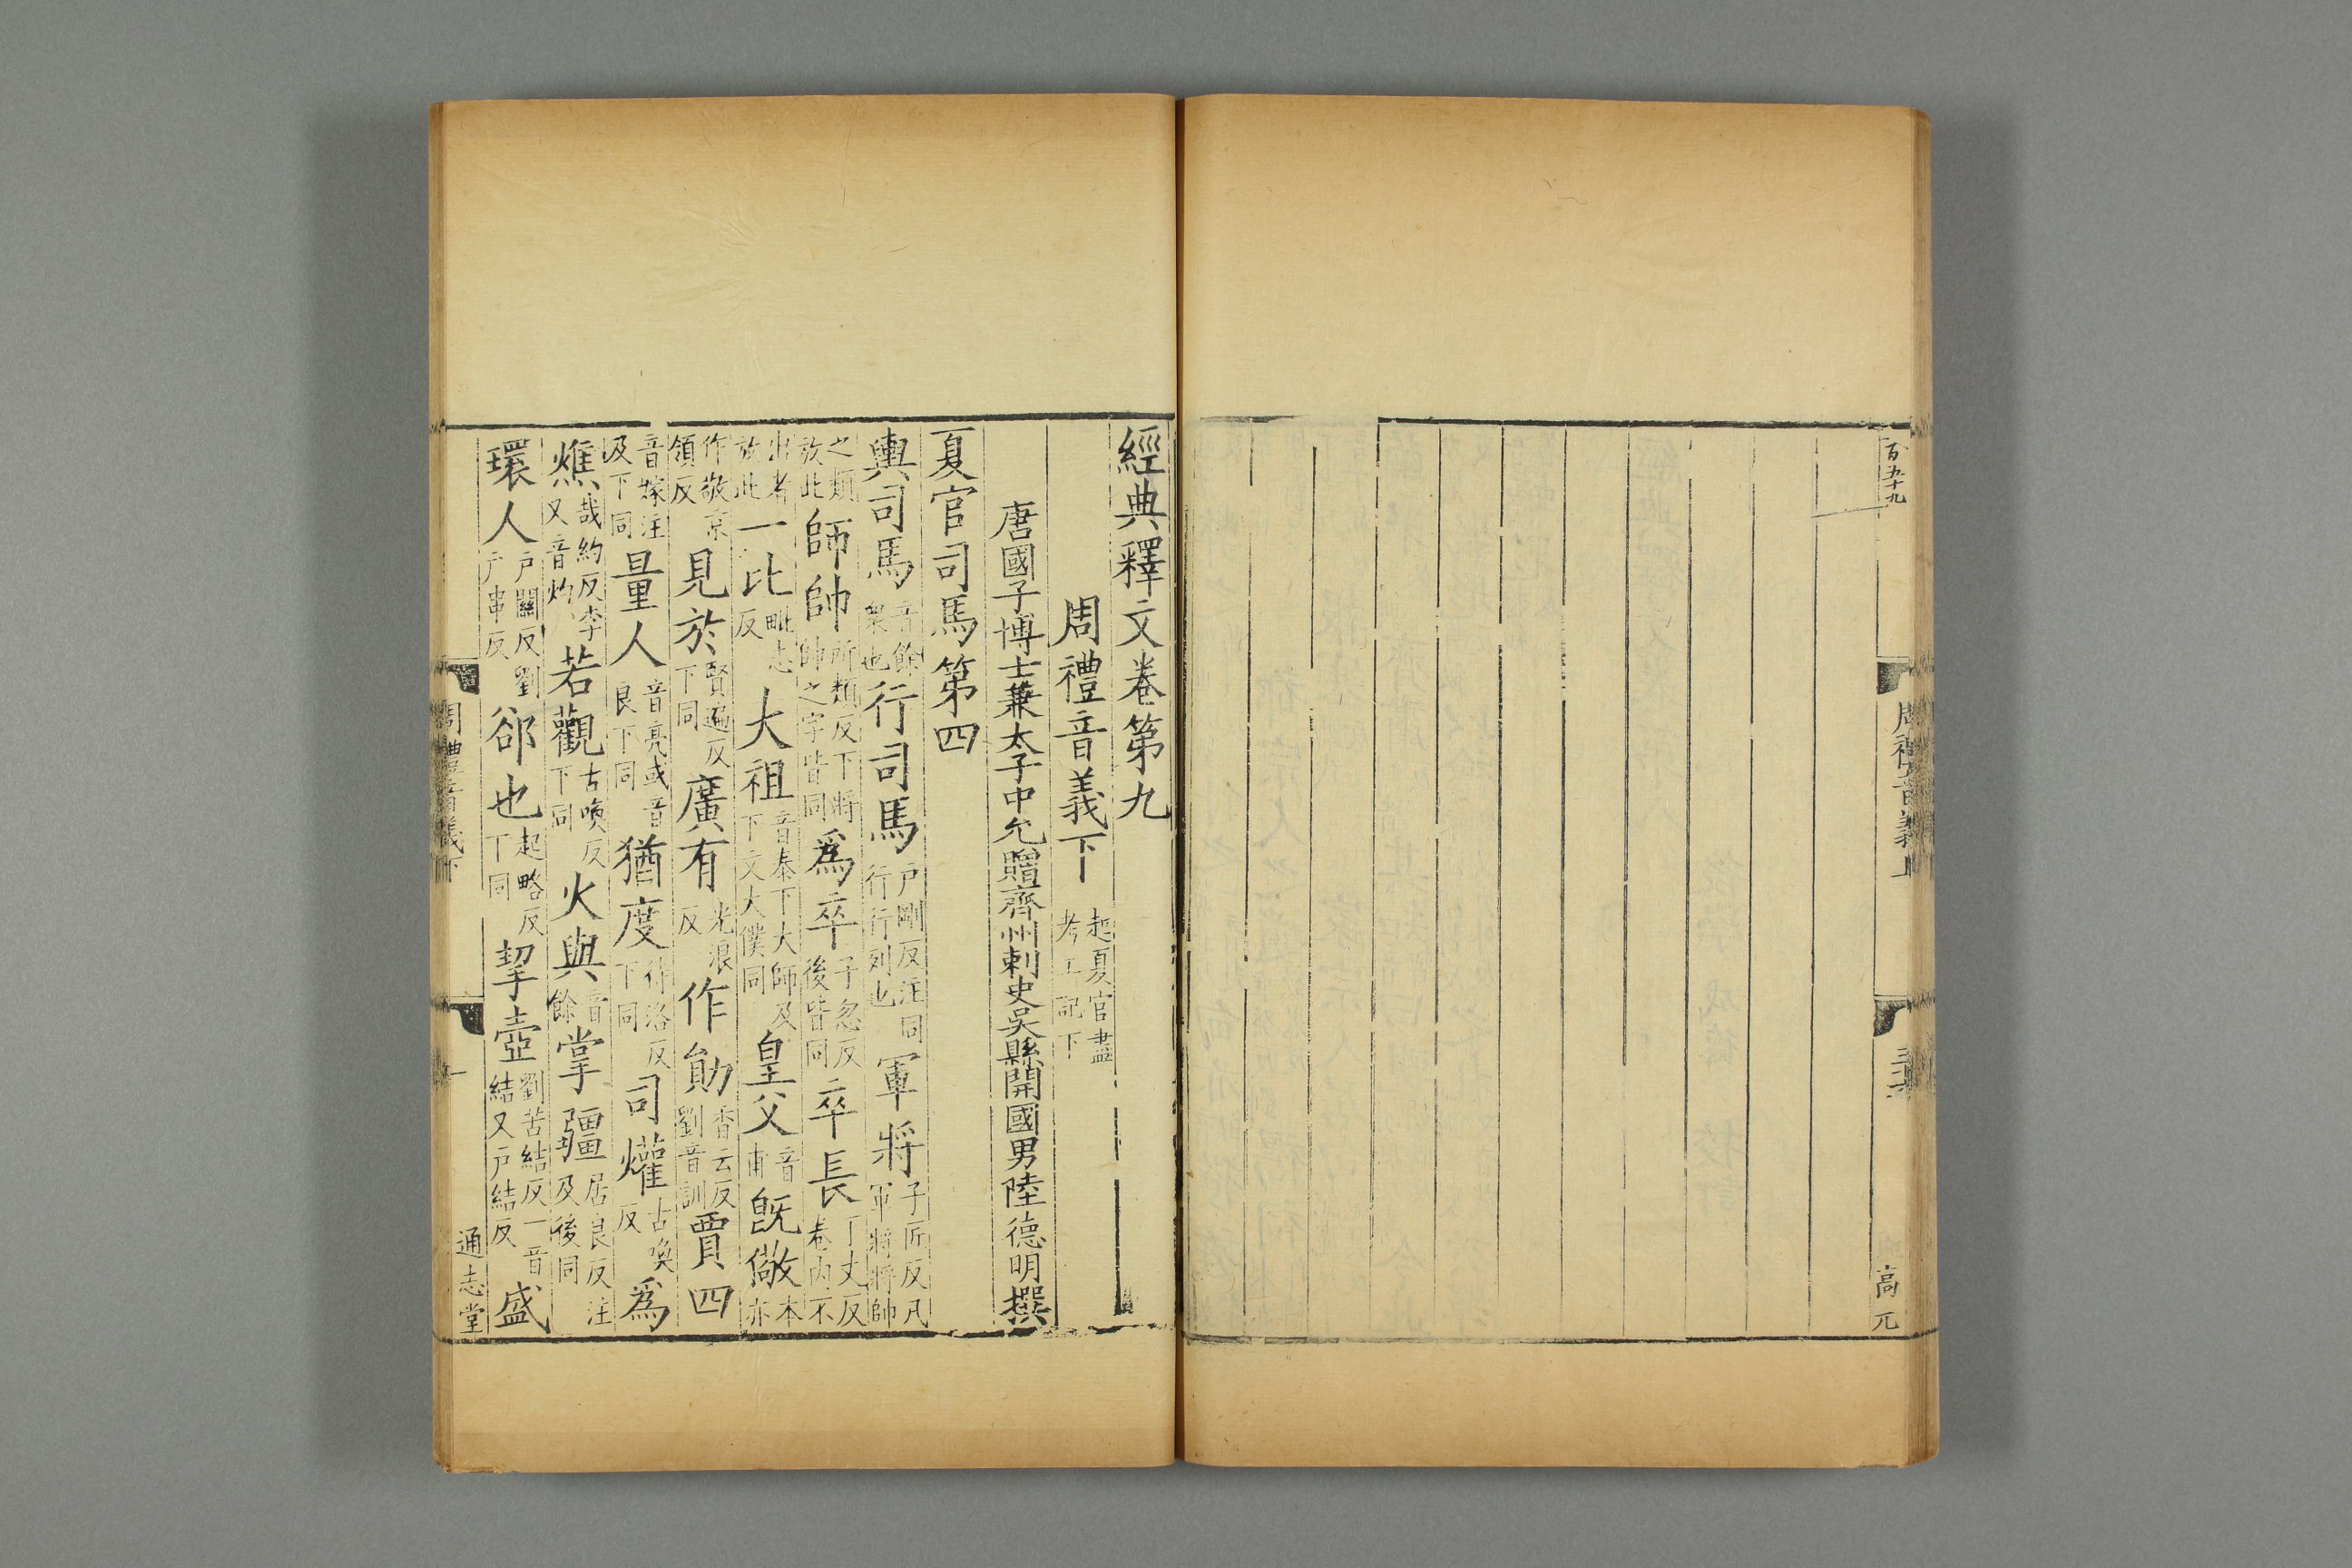 百九十九
周禮音義上
高元
經典釋文卷第九
周禮音義下 起夏官盡考工記下
唐國子博士兼太子中允贈齊州刺史吳縣開國男陸德明撰
夏官司馬第四
輿司馬 音餘衆也 行司馬 戸剛反注同行行列也 軍將 子匠反凡軍將將帥
之類放此 師帥 所類反下將帥之字皆同 爲卒 子忽反後皆同 卒長 丁丈反卷内不
出者放此 一比 毗志反 大祖 音泰下大師及下文大僕同 皇父 音甫 旣儆 本亦
作敬京領反 見於 賢遍反下同 廣有 光浪反 作勛 香云反劉音訓 賈四
音嫁注及下同 量人 音亮或音良下同 猶度 待洛反下同 司爟 古喚反 爲
燋 哉約反李又音灼 若觀 古喚反下同 火與 音餘 掌疆 居良反注及後同
環人 戸關反劉戸串反 郤也 起略反下同 挈壺 劉苦結反一音結又戸結反 盛
周禮音義下
一
通志堂